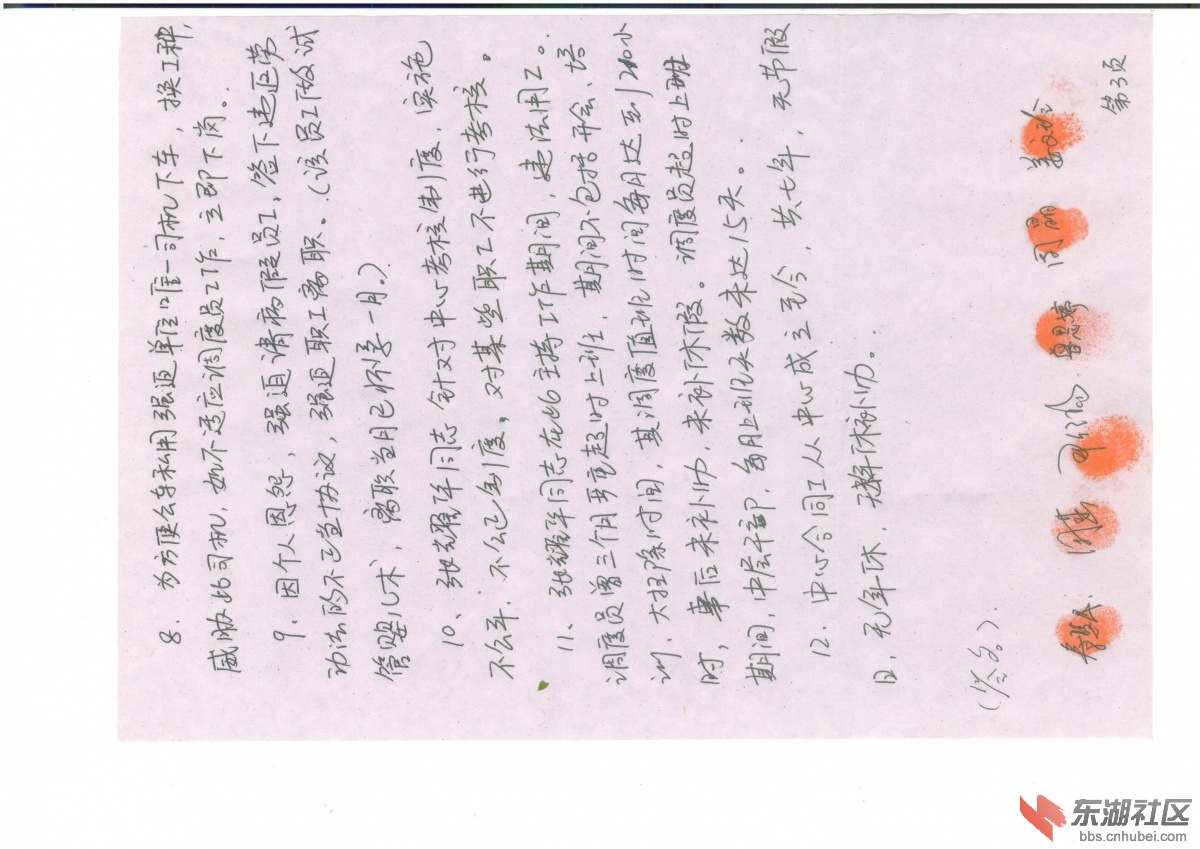 8. 为方便公车私用强迫单位唯一司机下车，换工种，
威胁此司机，如不适应调度员工作，立即下岗。
9. 因个人恩怨，强迫请病假员工，签下违反劳
动法的不正当协议，强迫职工离职。（该员工做试
管婴儿术，离职当月已怀孕一月。）
10、张耀军同志针对中心考核制度，实施
不公平，不公正制度，对某些职工不进行考核。
11、张耀军同志在此主持工作期间，违法用工。
调度员曾三个月严重超时上班，期间不包括开会、培
训，大扫除时间，其调度值班时间每月达到200小
时，事后未补助，未补休假。调度员超时上班
期间，中层干部，每月上班天数未达15天。
12. 中心合同工从中心成立至今，共七年，无节假
日，无年休，无年休补助。
（签名）
曾思婷
第3页
东湖社区
bbs.cnhubei.com